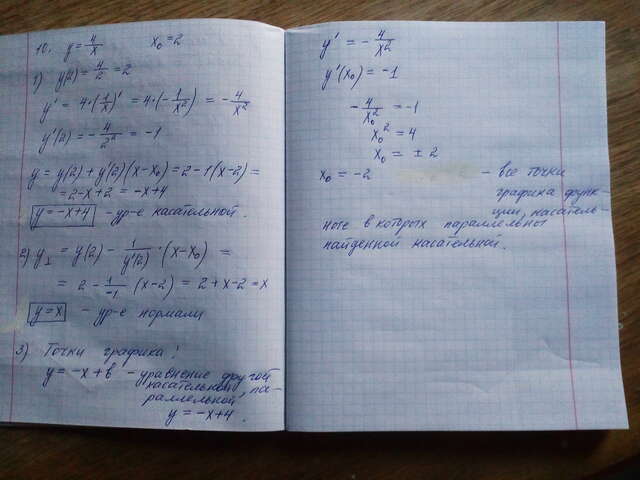 10. y = 4/x   x₀ = 2
1) y(2) = 4/2 = 2
y' = 4·(1/x)' = 4·(-1/x²) = -4/x²
y'(2) = -4/2² = -1
y = y(2) + y'(2)(x-x₀) = 2 - 1(x-2) =
= 2-x+2 = -x+4
y = -x+4 - ур-е касательной.
2) y⊥ = y(2) - 1/y'(2) · (x-x₀) =
= 2 - 1/-1 (x-2) = 2+x-2 = x
y = x - ур-е нормали
3) Точки графика:
y = -x+b - уравнение другой
касательной, па-
раллельной
y = -x+4.
y' = -4/x²
y'(x₀) = -1
-4/x₀² = -1
x₀² = 4
x₀ = ±2
x₀ = -2 - все точки
графика функ-
ции, касатель-
ные в которых параллельны
найденной касательной.